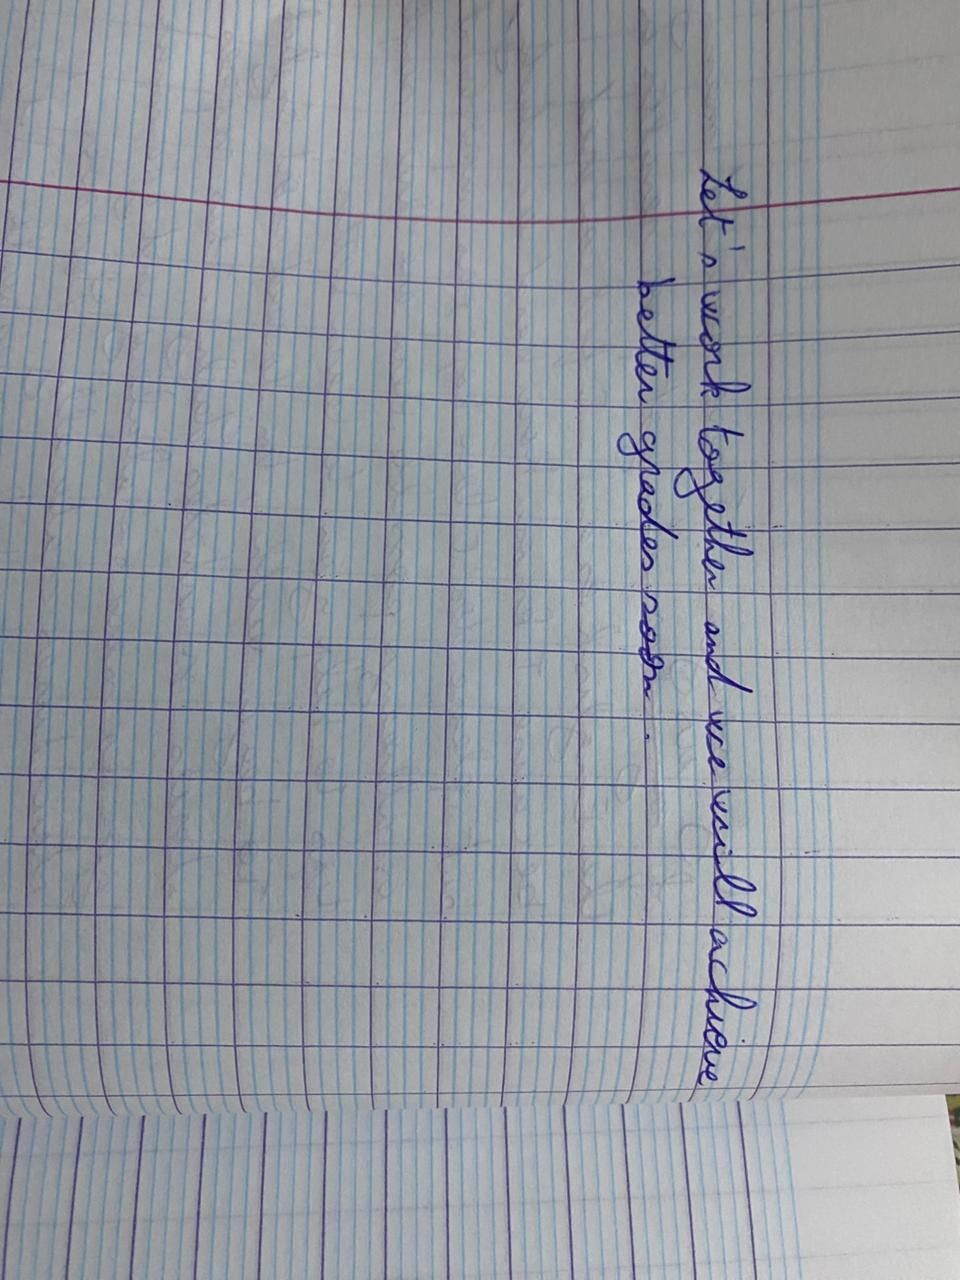 Let's work together and we will achieve
better grades soon.